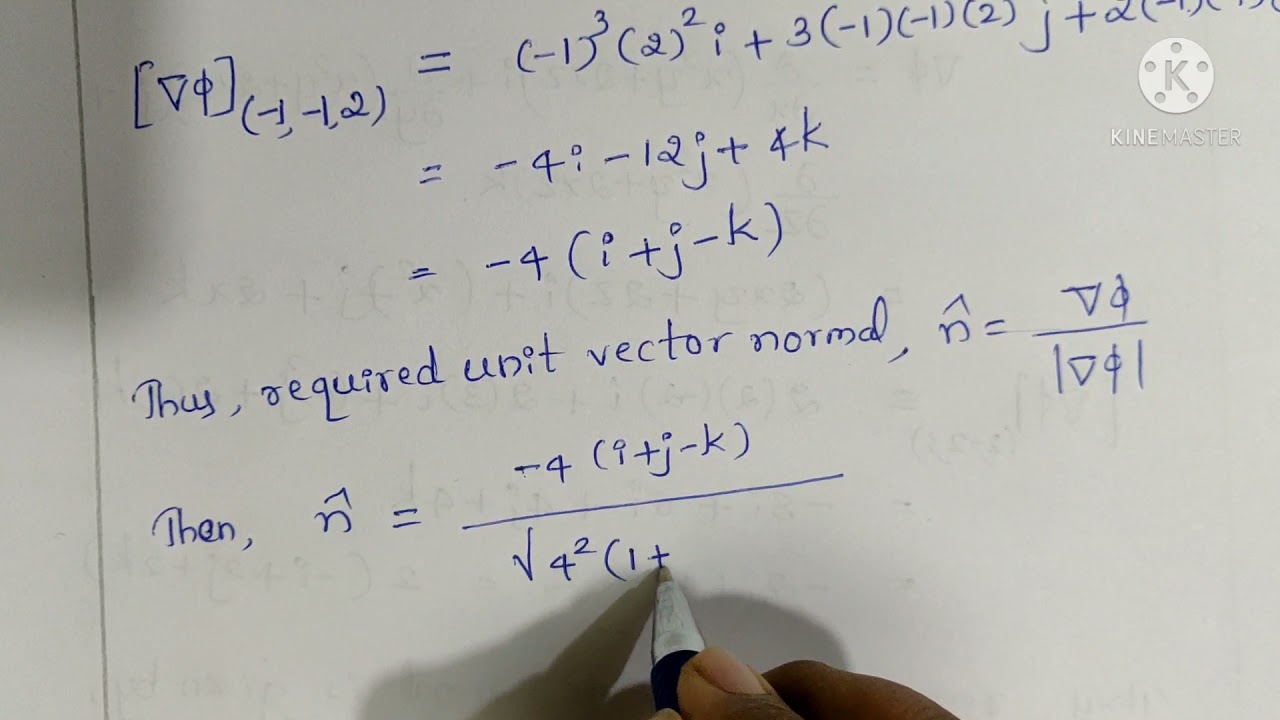 [∇φ](-1,-1,2) = (-1)³(2)²i + 3(-1)(-1)(2)j + 2(-1)
= -4i - 12j + 4k
= -4(i+j-k)
Thus, required unit vector normal, n̂ = ∇φ / |∇φ|
Then, n̂ = -4(i+j-k) / √4²(1+
K
KINEMASTER